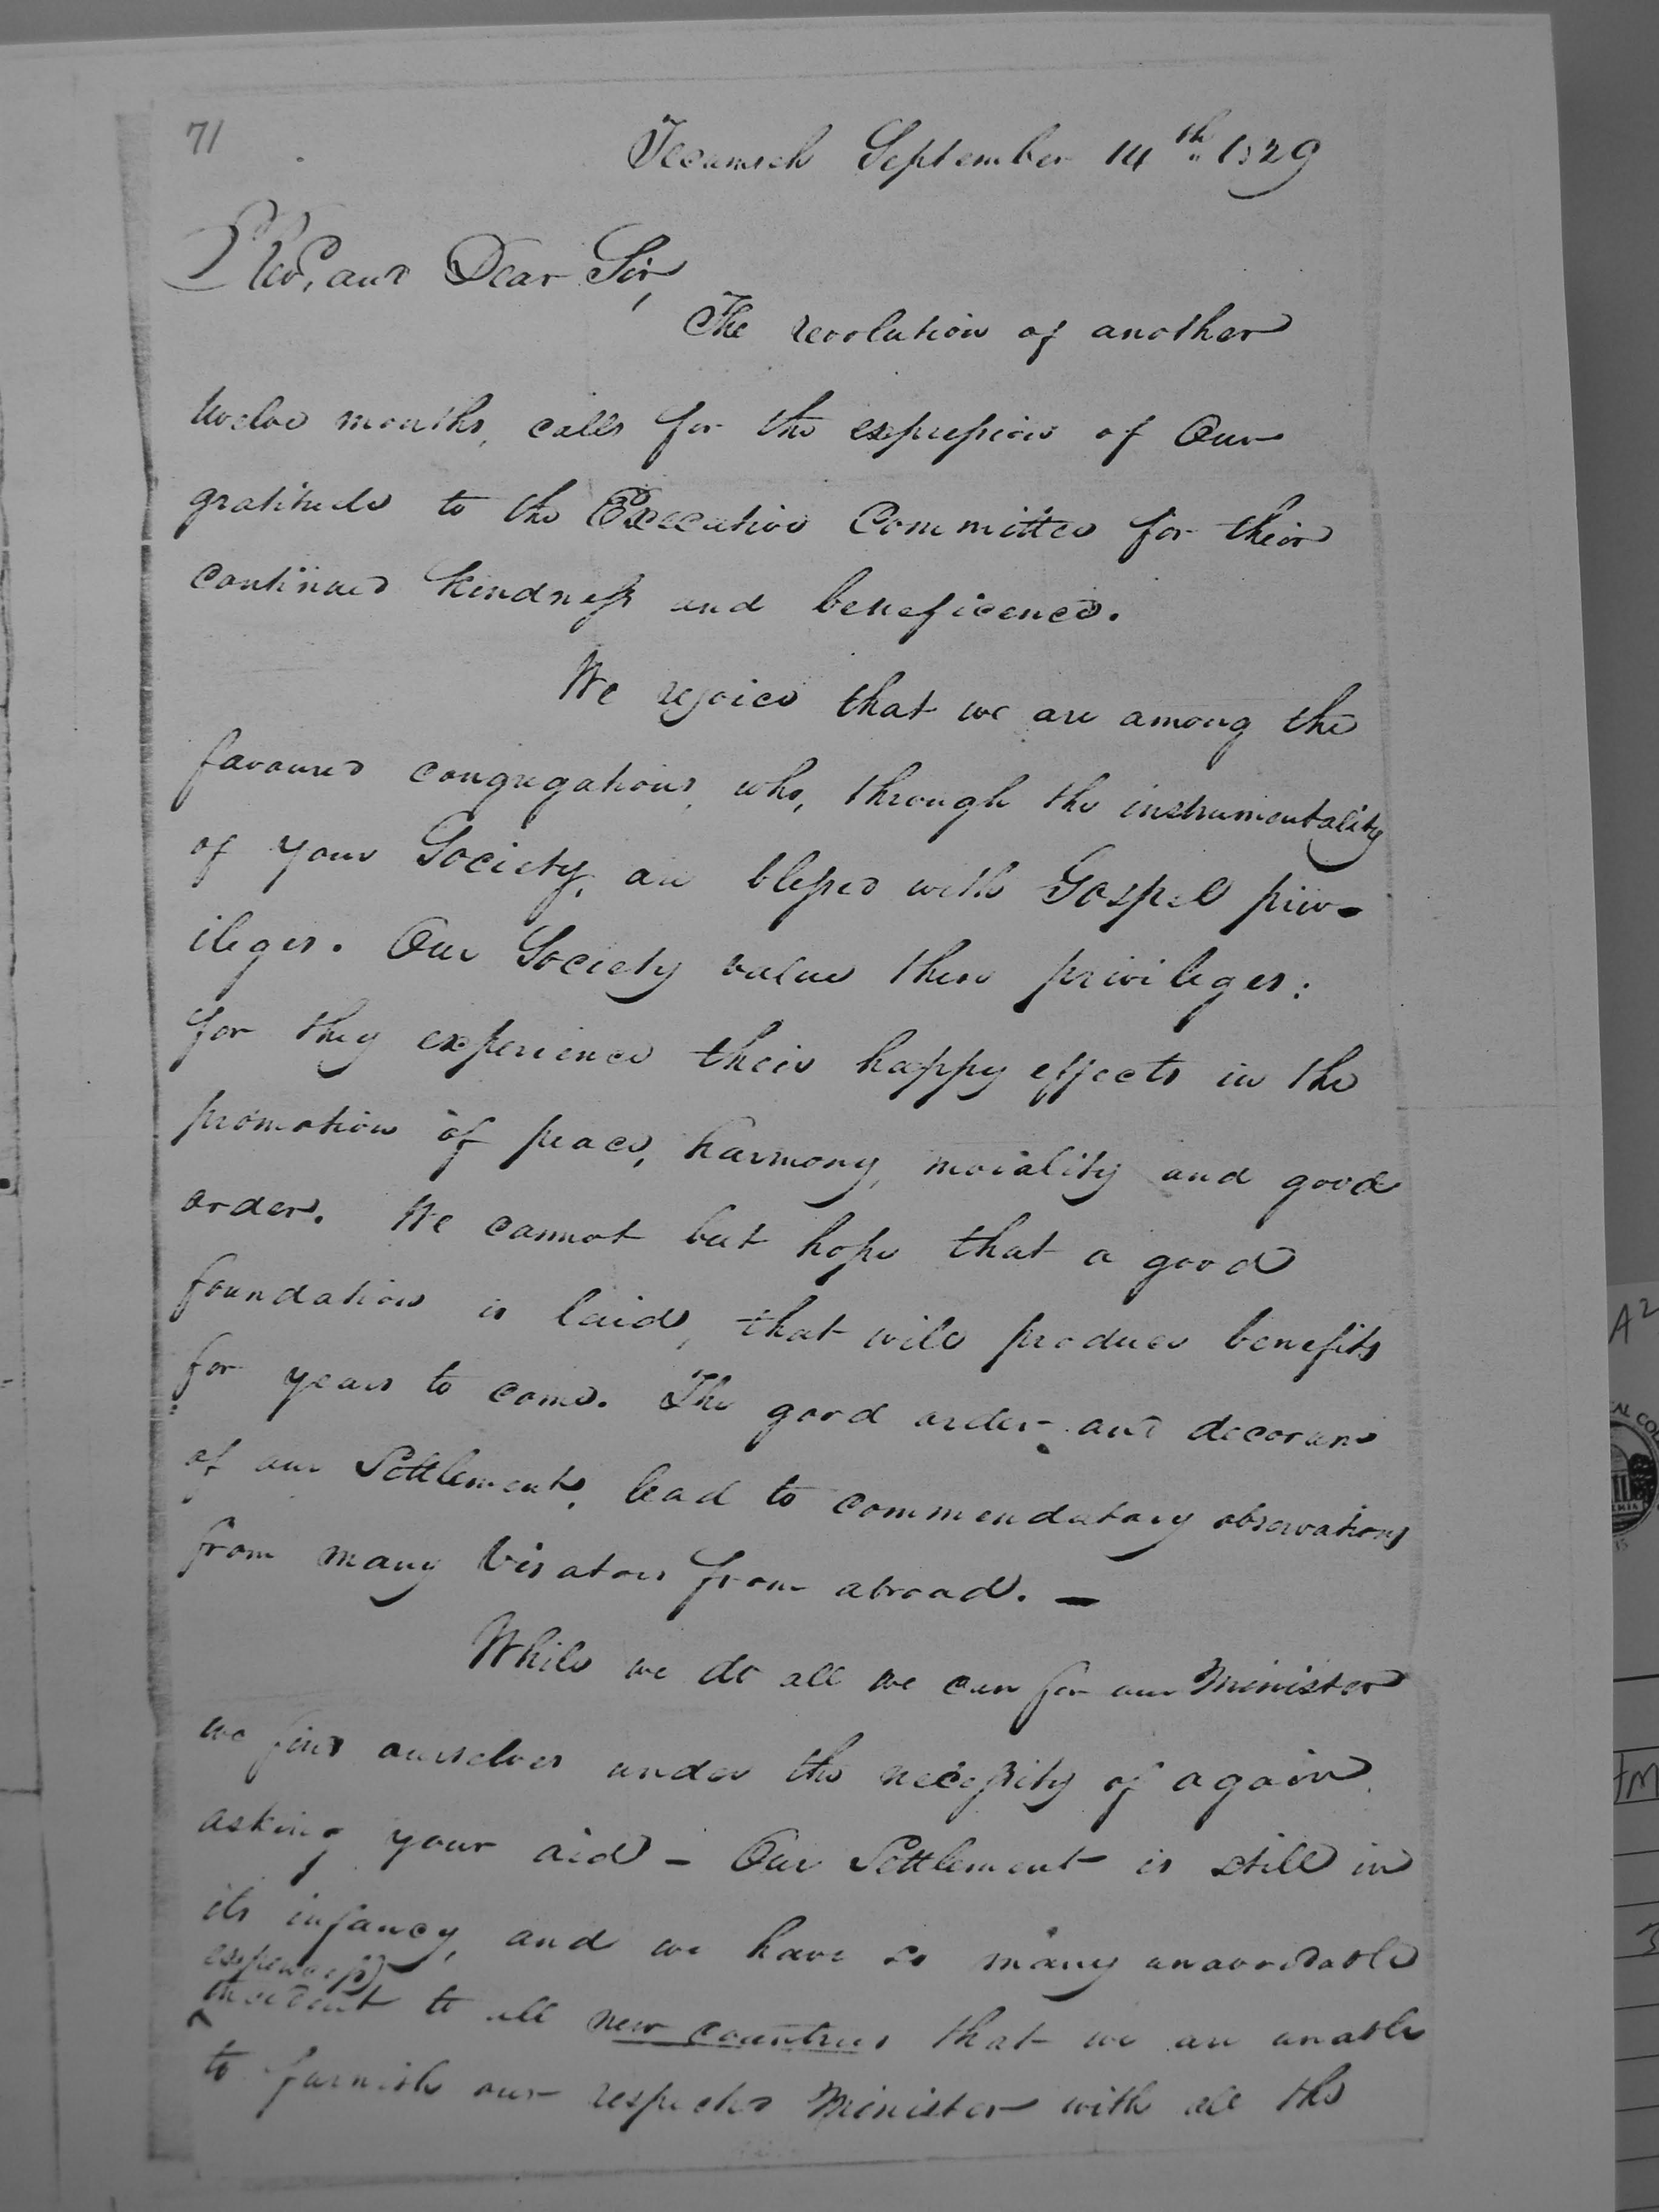 71
Tecumseh September 14th 1829
Revd, and Dear Sir,
The revolution of another
twelve months, calls for the expression of Our
gratitude to the Executive Committee for their
continued kindness and beneficence.
We rejoice that we are among the
favoured congregations, who, through the instrumentality
of your Society, are blessed with Gospel priv-
ileges. Our Society value these privileges:
for they experience their happy effects in the
promotion of peace, harmony, morality and good
order. We cannot but hope that a good
foundation is laid, that will produce benefits
for years to come. The good order and decorum
of our Settlement, lead to commendatory observations
from many visators from abroad. —
While we do all we can for our Minister
we find ourselves under the necessity of again
asking your aid – Our Settlement is still in
its infancy, and we have so many unavoidable
expenses
incident to all new countries that we are unable
to furnish our respected Minister with all the
A2
AL CO
FM
3